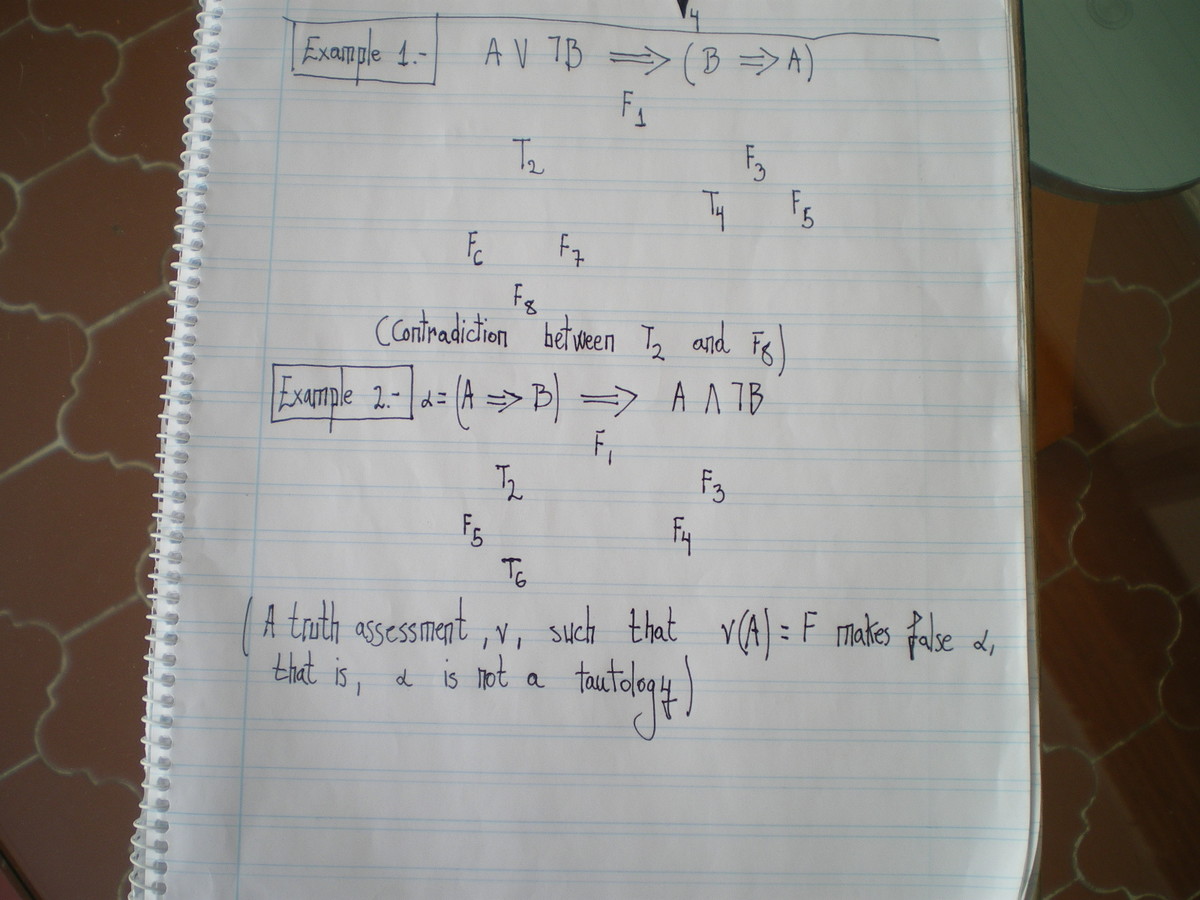 4
Example 1.- A ∨ ¬B ⟹ (B ⟹ A)
F₁
T₂ F₃
T₄ F₅
F₆ F₇
F₈
(Contradiction between T₂ and F₈)
Example 2.- α = (A ⟹ B) ⟹ A ∧ ¬B
F₁
T₂ F₃
F₅ F₄
T₆
(A truth assessment, v, such that v(A) = F makes false α,
that is, α is not a tautology)